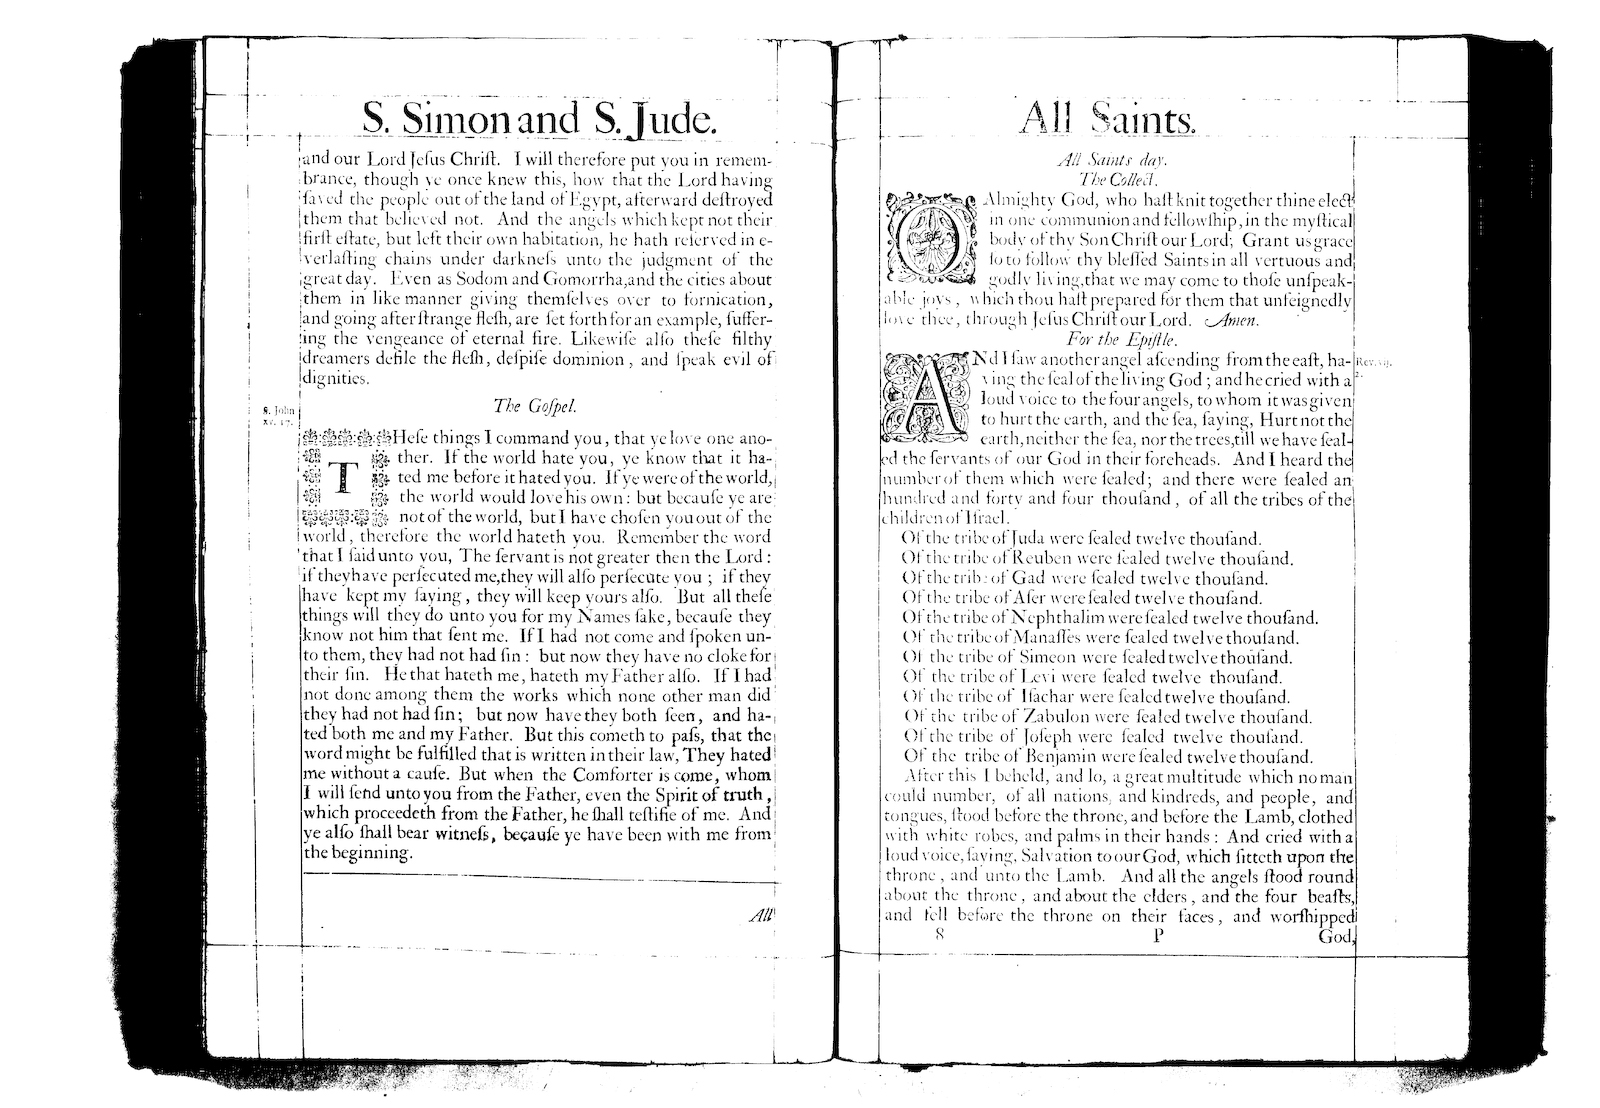 S. Simon and S. Jude.
and our Lord Jeſus Chriſt. I will therefore put you in remem-
brance, though ye once knew this, how that the Lord having
ſaved the people out of the land of Egypt, afterward deſtroyed
them that believed not. And the angels which kept not their
firſt eſtate, but left their own habitation, he hath reſerved in e-
verlaſting chains under darkneſs unto the judgment of the
great day. Even as Sodom and Gomorrha, and the cities about
them in like manner giving themſelves over to fornication,
and going after ſtrange fleſh, are ſet forth for an example, ſuffer-
ing the vengeance of eternal fire. Likewiſe alſo theſe filthy
dreamers defile the fleſh, deſpiſe dominion, and ſpeak evil of
dignities.
The Goſpel.
S. John
xv. 17.
THeſe things I command you, that ye love one ano-
ther. If the world hate you, ye know that it ha-
ted me before it hated you. If ye were of the world,
the world would love his own: but becauſe ye are
not of the world, but I have choſen you out of the
world, therefore the world hateth you. Remember the word
that I ſaid unto you, The ſervant is not greater then the Lord:
if they have perſecuted me, they will alſo perſecute you; if they
have kept my ſaying, they will keep yours alſo. But all theſe
things will they do unto you for my Names ſake, becauſe they
know not him that ſent me. If I had not come and ſpoken un-
to them, they had not had ſin: but now they have no cloke for
their ſin. He that hateth me, hateth my Father alſo. If I had
not done among them the works which none other man did
they had not had ſin; but now have they both ſeen, and ha-
ted both me and my Father. But this cometh to paſs, that the
word might be fulfilled that is written in their law, They hated
me without a cauſe. But when the Comforter is come, whom
I will ſend unto you from the Father, even the Spirit of truth,
which proceedeth from the Father, he ſhall teſtifie of me. And
ye alſo ſhall bear witneſs, becauſe ye have been with me from
the beginning.
All
All Saints.
All Saints day.
The Collect.
O Almighty God, who haſt knit together thine elect
in one communion and fellowſhip, in the myſtical
body of thy Son Chriſt our Lord; Grant us grace
ſo to follow thy bleſſed Saints in all vertuous and
godly living, that we may come to thoſe unſpeak-
able joys, which thou haſt prepared for them that unfeignedly
love thee, through Jeſus Chriſt our Lord. Amen.
For the Epiſtle.
ANd I ſaw another angel aſcending from the eaſt, ha-
Rev. vij.
2.
ving the ſeal of the living God; and he cried with a
loud voice to the four angels, to whom it was given
to hurt the earth, and the ſea, ſaying, Hurt not the
earth, neither the ſea, nor the trees, till we have ſeal-
ed the ſervants of our God in their foreheads. And I heard the
number of them which were ſealed; and there were ſealed an
hundred and forty and four thouſand, of all the tribes of the
children of Iſrael.
Of the tribe of Juda were ſealed twelve thouſand.
Of the tribe of Reuben were ſealed twelve thouſand.
Of the tribe of Gad were ſealed twelve thouſand.
Of the tribe of Aſer were ſealed twelve thouſand.
Of the tribe of Nephthalim were ſealed twelve thouſand.
Of the tribe of Manaſſes were ſealed twelve thouſand.
Of the tribe of Simeon were ſealed twelve thouſand.
Of the tribe of Levi were ſealed twelve thouſand.
Of the tribe of Iſachar were ſealed twelve thouſand.
Of the tribe of Zabulon were ſealed twelve thouſand.
Of the tribe of Joſeph were ſealed twelve thouſand.
Of the tribe of Benjamin were ſealed twelve thouſand.
After this I beheld, and lo, a great multitude which no man
could number, of all nations, and kindreds, and people, and
tongues, ſtood before the throne, and before the Lamb, clothed
with white robes, and palms in their hands: And cried with a
loud voice, ſaying, Salvation to our God, which ſitteth upon the
throne, and unto the Lamb. And all the angels ſtood round
about the throne, and about the elders, and the four beaſts,
and fell before the throne on their faces, and worſhipped
8 P God,